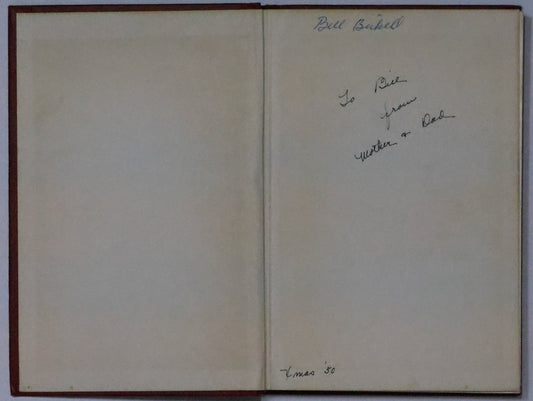 Bill
To Bill
from
Mother & Dad
Xmas '50